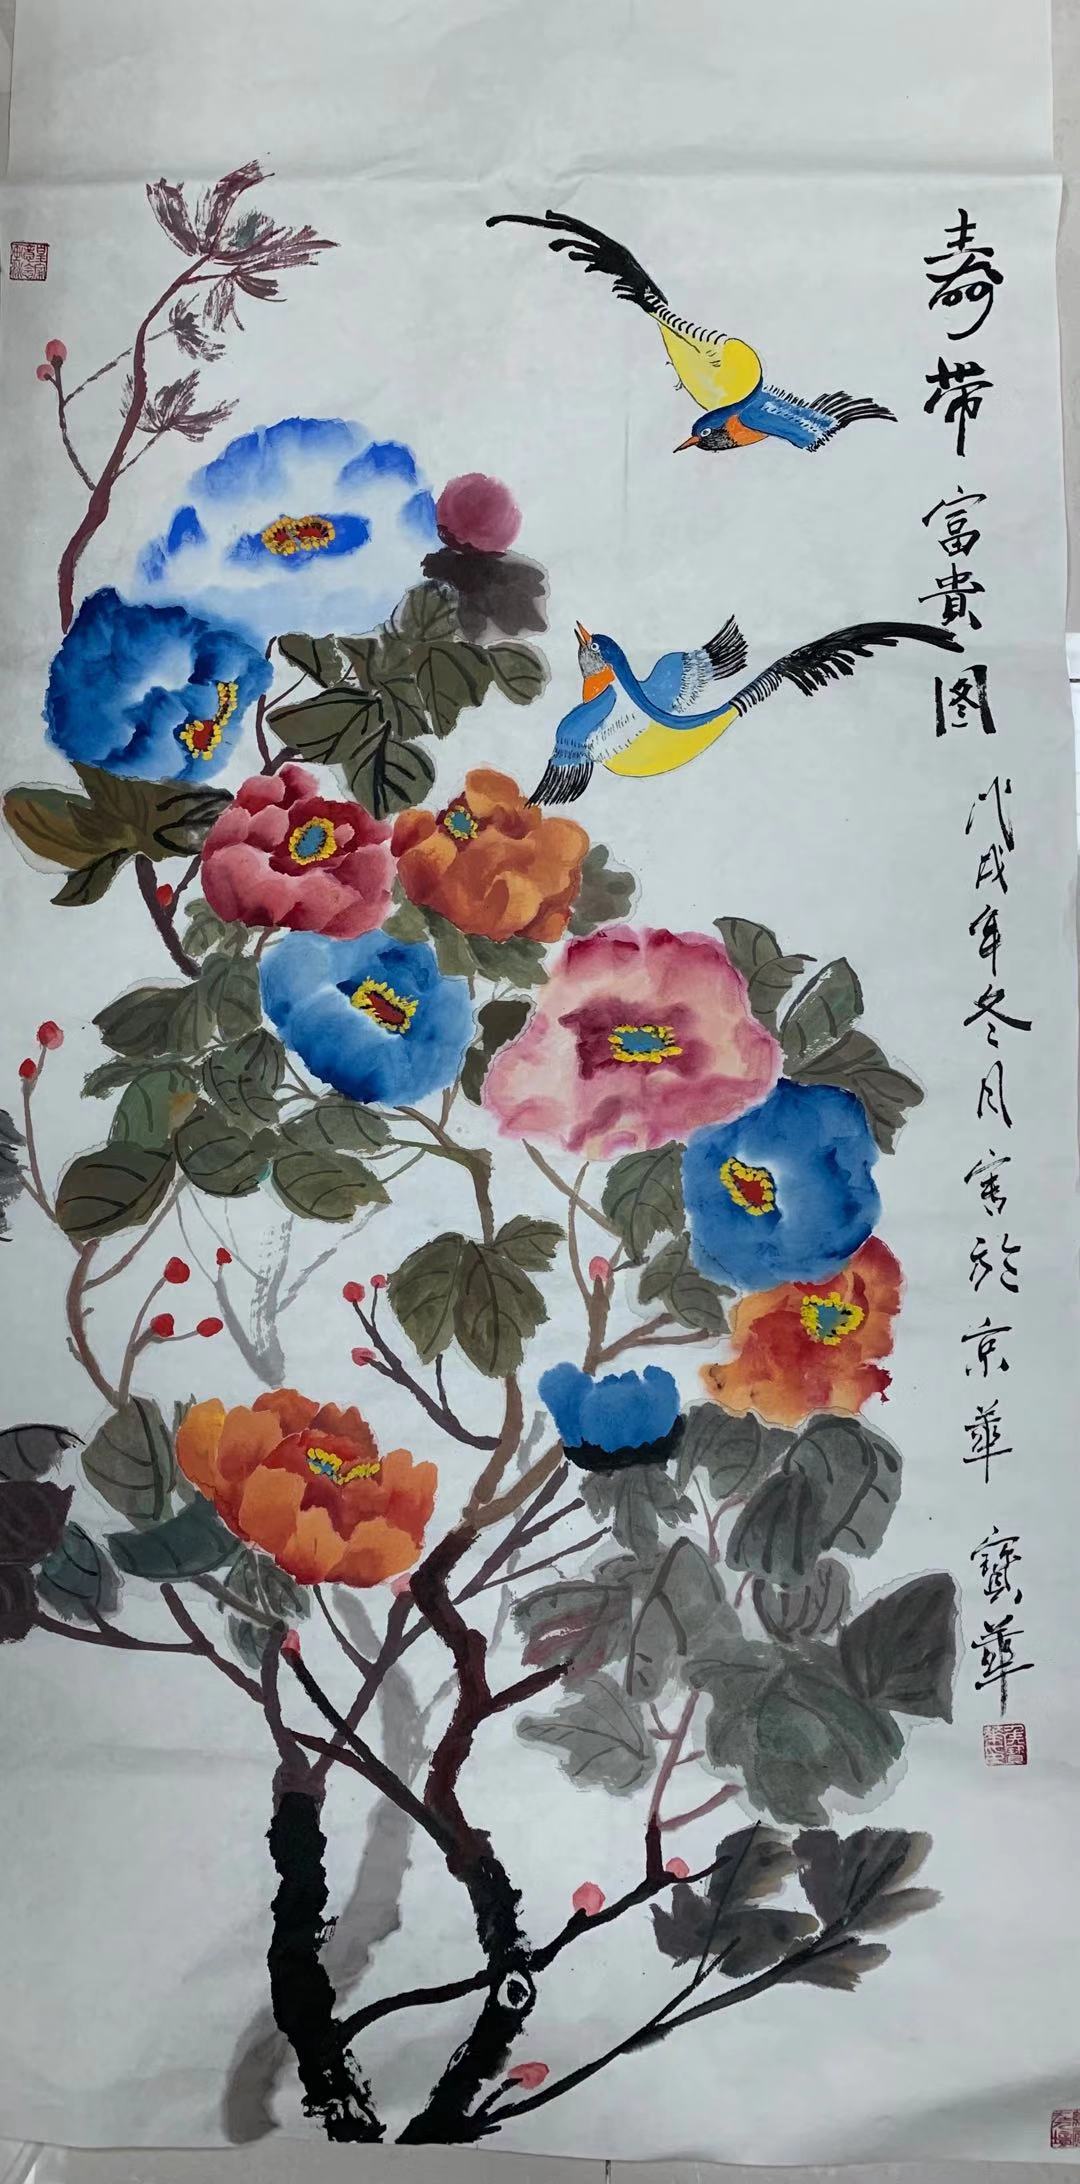 壽带富貴图
戊戌年冬月寫於京華 寶華